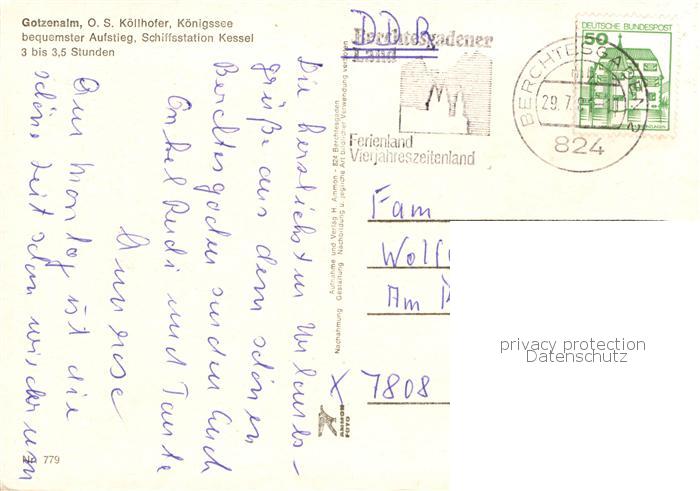 Gotzenalm, O. S. Köllhofer, Königssee
bequemster Aufstieg, Schiffsstation Kessel
3 bis 3,5 Stunden
DDR
Berchtesgadener
Land
Ferienland
Vierjahreszeitenland
DEUTSCHE BUNDESPOST
50
BERCHTESGADEN 2
29.7.
824
Die herzlichsten Urlaubs-
grüße aus dem schönen
Berchtesgaden senden Euch
Onkel Rudi und Tante
Annerose
Am Montag ist die
schöne Zeit schon wieder um
Aufnahme und Verlag H. Ammon · 824 Berchtesgaden
Nachahmung Gestaltung Nachbildung u. jegliche Art bildlicher Verwendung verboten
AMMON
FOTO
Fam
Wolf
Am
X 7808
privacy protection
Datenschutz
779